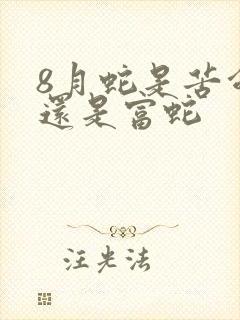 8月蛇是苦命
還是富蛇
汪光法